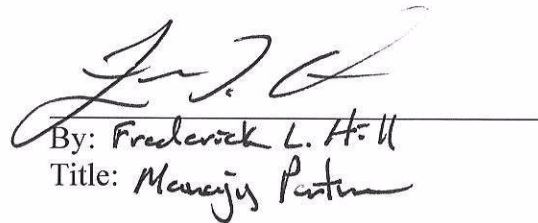 By: Frederick L. Hill
Title: Managing Partner